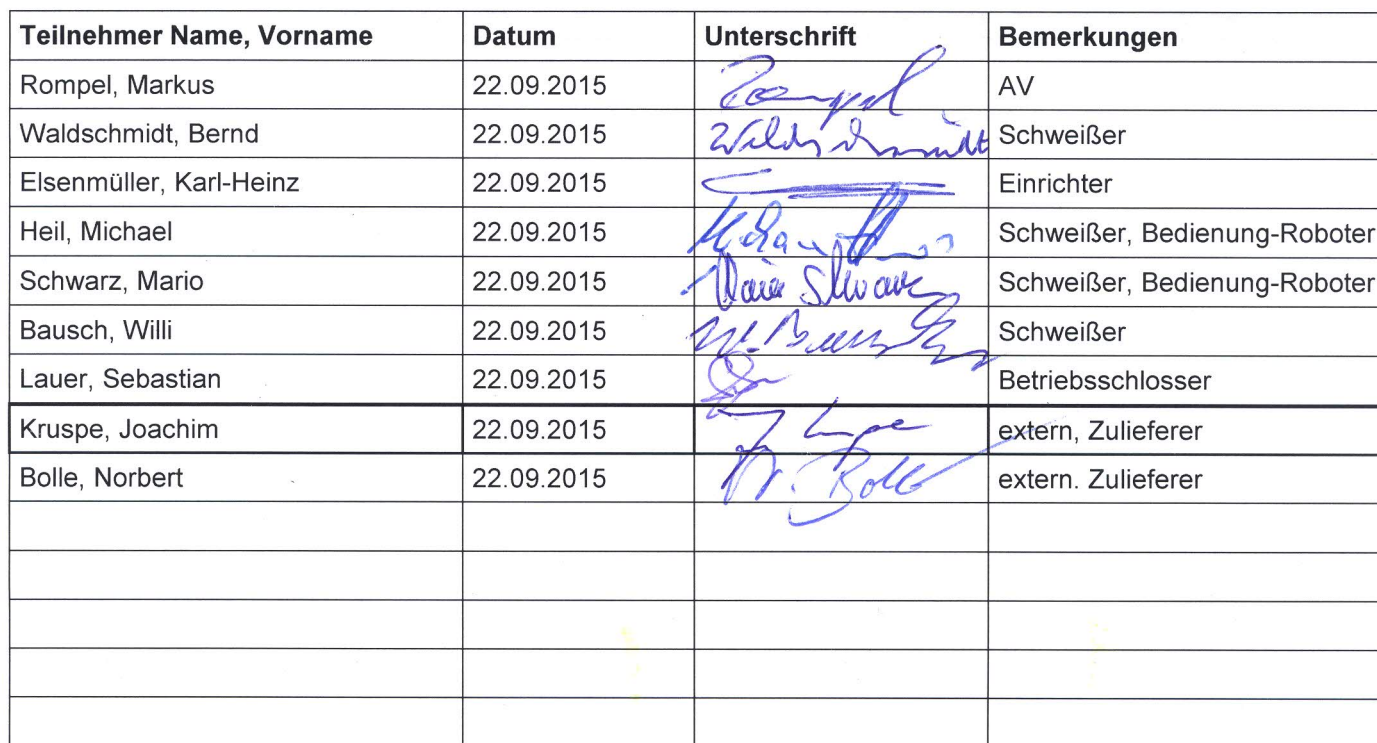 Teilnehmer Name, Vorname Datum Unterschrift Bemerkungen
Rompel, Markus 22.09.2015 Rompel AV
Waldschmidt, Bernd 22.09.2015 Waldschmidt Schweißer
Elsenmüller, Karl-Heinz 22.09.2015 Einrichter
Heil, Michael 22.09.2015 Schweißer, Bedienung-Roboter
Schwarz, Mario 22.09.2015 Mario Schwarz Schweißer, Bedienung-Roboter
Bausch, Willi 22.09.2015 Schweißer
Lauer, Sebastian 22.09.2015 Betriebsschlosser
Kruspe, Joachim 22.09.2015 extern, Zulieferer
Bolle, Norbert 22.09.2015 N. Bolle extern. Zulieferer